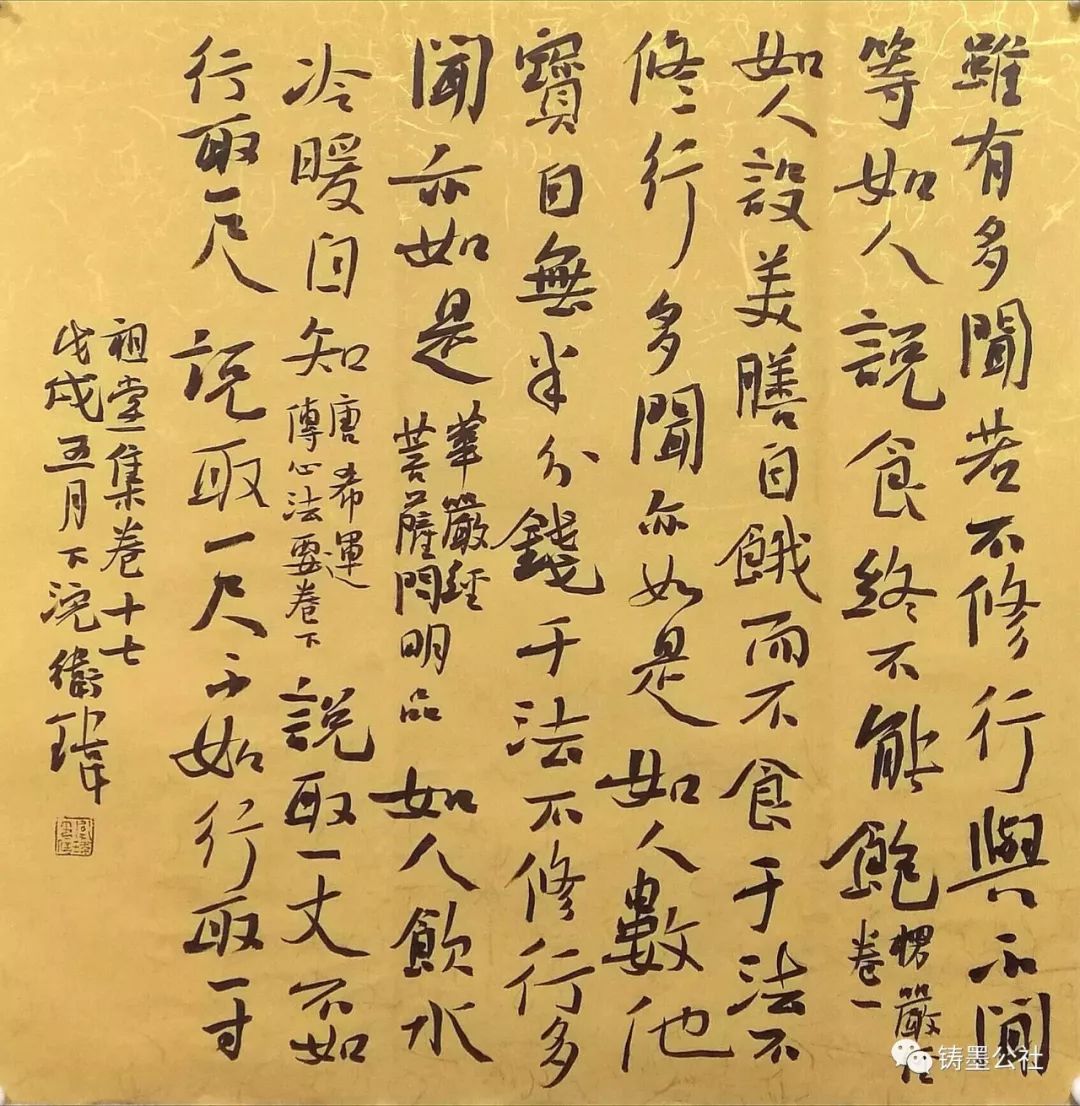 雖有多聞若不修行與不聞
等如人說食終不能飽
楞嚴經
卷一
如人設美膳自餓而不食于法不
修行多聞亦如是如人數他
寶自無半分錢于法不修行多
聞亦如是
華嚴經
菩薩問明品
如人飲水
冷暖自知
唐希運
傳心法要卷下
說取一丈不如
行取一尺說取一尺不如行取一寸
祖堂集卷十七
戊戌五月下浣衛瑋
铸墨公社